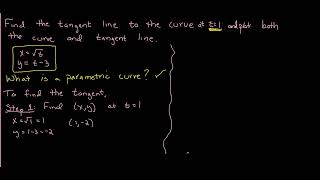 Find the tangent line to the curve at t=1 and plot both
the curve and tangent line.
x = √t
y = t-3
What is a parametric curve? ✓
To find the tangent,
Step 1: Find (x,y) at t=1
x = √1 = 1 (1,-2)
y = 1-3 = -2